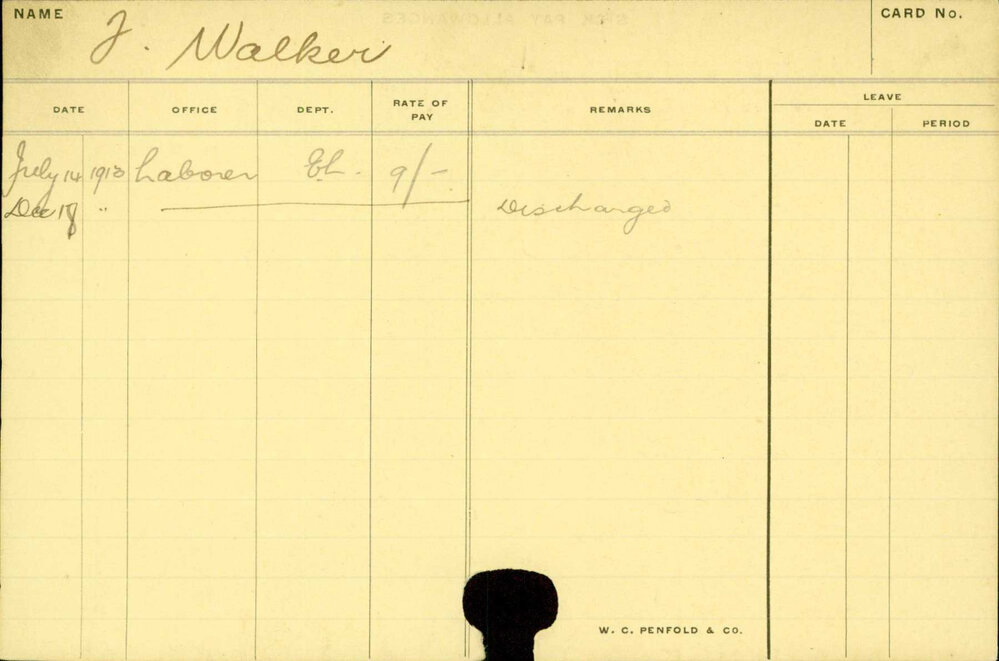 NAME J. Walker CARD No.
DATE OFFICE DEPT. RATE OF PAY REMARKS LEAVE
DATE PERIOD
July 14 1913 Laborer EL. 9/-
Dec " Discharged
W. C. PENFOLD & CO.